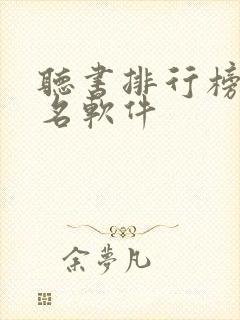 聽書排行榜
名軟件
余夢凡